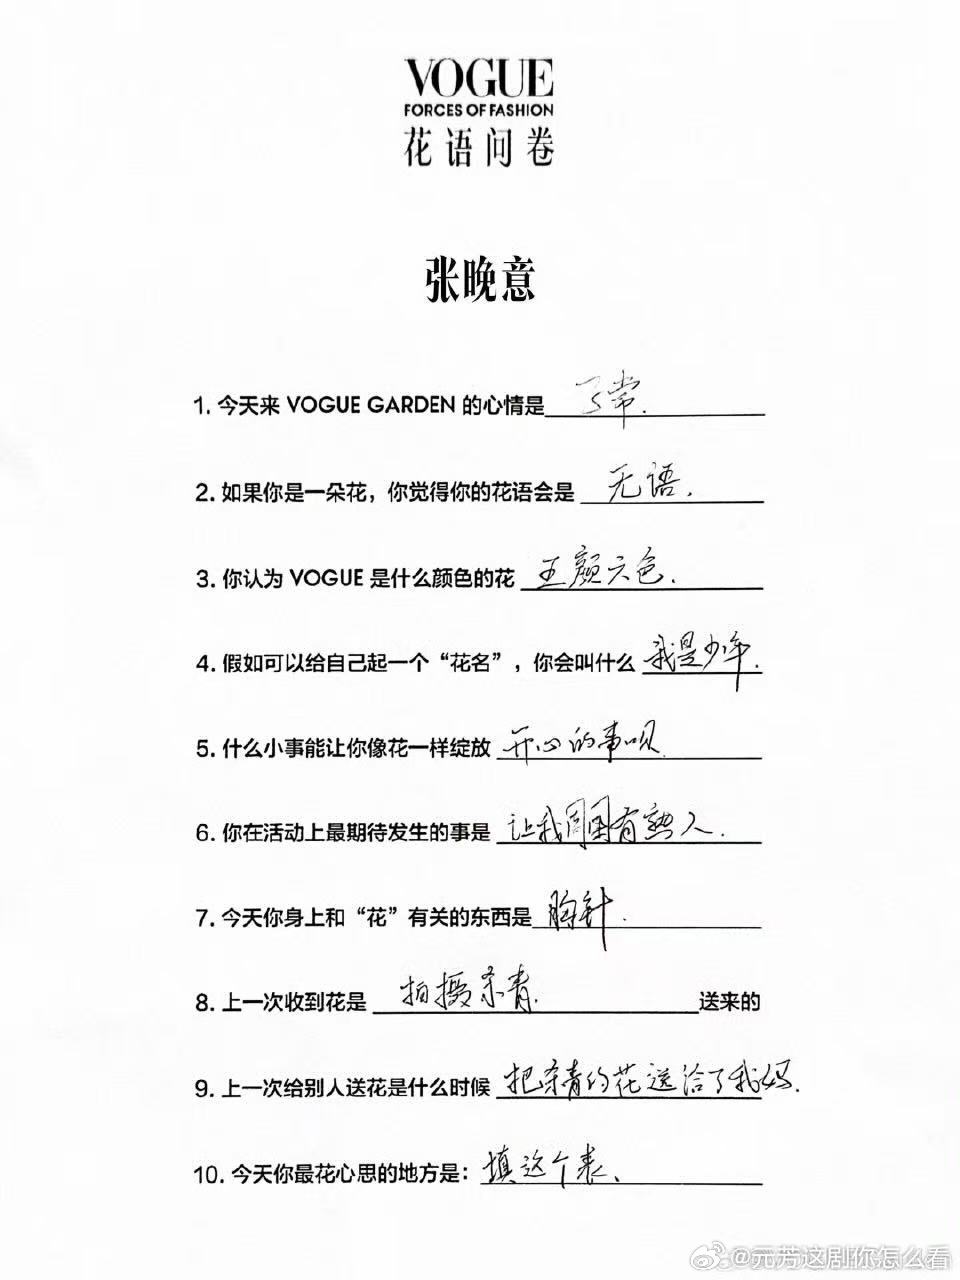 VOGUE
FORCES OF FASHION
花语问卷
张晚意
1. 今天来 VOGUE GARDEN 的心情是 了常.
2. 如果你是一朵花，你觉得你的花语会是 无语.
3. 你认为 VOGUE 是什么颜色的花 五颜六色.
4. 假如可以给自己起一个“花名”，你会叫什么 我是少年.
5. 什么小事能让你像花一样绽放 开心的事呗
6. 你在活动上最期待发生的事是 让我周围有熟人.
7. 今天你身上和“花”有关的东西是 胸针.
8. 上一次收到花是 拍摄杀青. 送来的
9. 上一次给别人送花是什么时候 把杀青的花送给了我妈.
10. 今天你最花心思的地方是： 填这个表、
@元芳这剧你怎么看